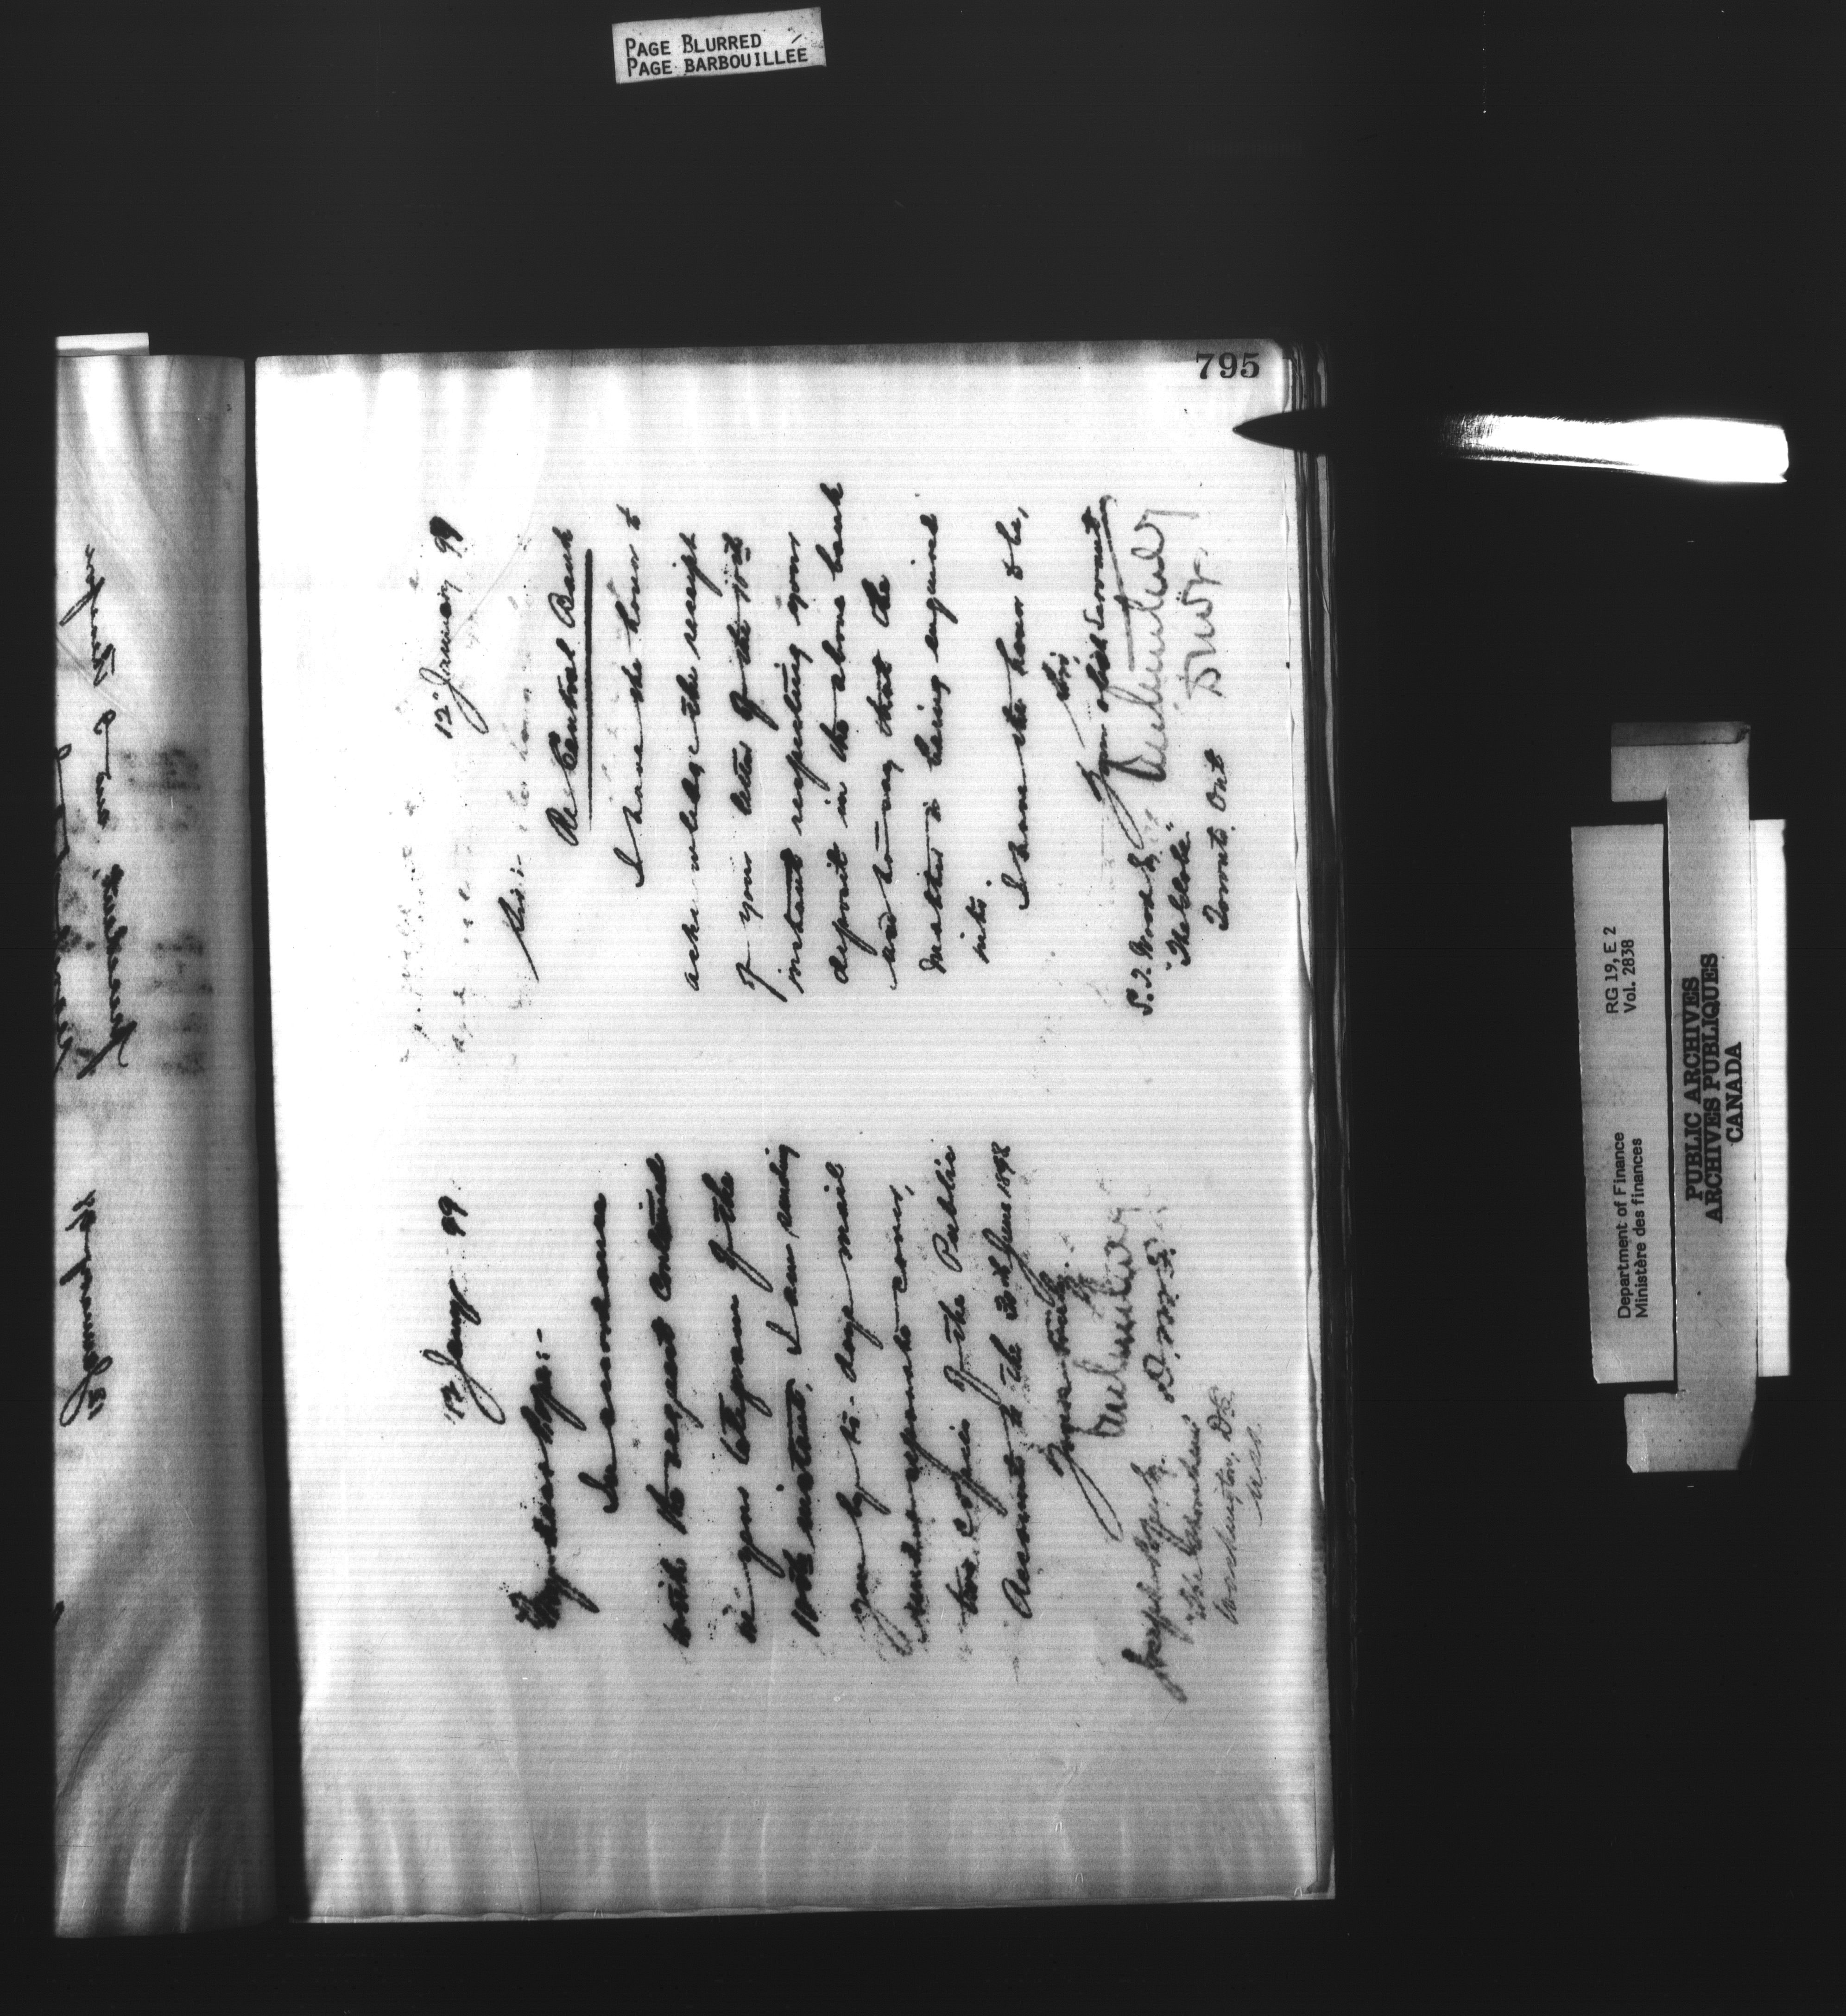 PAGE BLURRED
PAGE BARBOUILLÉE
795
12 Jany 99
My dear Pope:-
In accordance
with the request contained
in your telegram of the
10th instant, I am sending
you by to-day's mail
under separate cover,
two copies of the Public
Accounts to the 30th June 1898
Yours truly
D.M.F.
Joseph Pope Esq.
Washington, D.C.
U.S.A.
12 January 99
Sir:
Re Central Bank
I have the honor to
acknowledge the receipt
of your letter of the 10th
instant respecting your
deposit in the above bank
and to say that the
matter is being enquired
into.
I have the honor to be,
Sir,
Your obdt Servant
S. T. Wood Esq
"The Globe"
Toronto Ont
Department of Finance
Ministère des finances
RG 19, E 2
Vol. 2838
PUBLIC ARCHIVES
ARCHIVES PUBLIQUES
CANADA